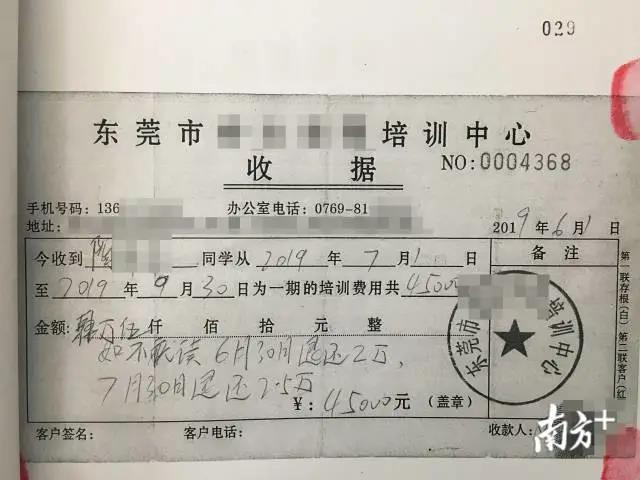 029
东莞市 培训中心
收 据 NO:0004368
手机号码:136 办公室电话:0769-81
地址: 2019年6月1日
今收到 同学从2019年7月1日 备 注
至2019年9月30日为一期的培训费用共45000
金额:肆万伍仟 佰 拾 元 整
如不就读6月30日退还2万,
7月30日退还2.5万
¥:45000元(盖章)
客户签名: 客户电话: 收款人:
第一联存根(白)第二联客户(红
东莞市 培训中心
南方+